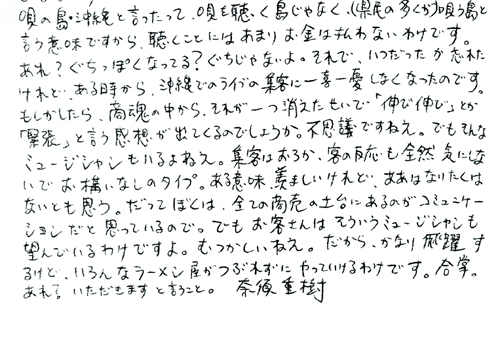 唄の島・沖縄と言ったって、唄を聴く島じゃなく、(県民の多くが)唄う島と
言う意味ですから、聴くことにはあまりお金は払わないわけです。
あれ？ぐちっぽくなってる？ぐちじゃないよ。それで、いつだったか忘れた
けれど、ある時から、沖縄でのライブの集客に一喜一憂しなくなったのです。
もしかしたら、商魂の中から、それが一つ消えたせいで「伸び伸び」とか
「緊張」と言う感想が出てくるのでしょうか。不思議ですねえ。でもそんな
ミュージシャンもいるよねえ。集客はおろか、客の反応も全然気にしな
いでお構いなしのタイプ。ある意味、羨ましいけれど、ああはなりたくは
ないとも思う。だってぼくは、全ての商売の土台にあるのがコミュニケー
ションだと思っているので。でもお客さんはそういうミュージシャンも
望んでいるわけですよ。むつかしいねえ。だから、かなり飛躍す
るけど、いろんなラーメン屋がつぶれずにやっていけるわけです。合掌。
あれ？いただきますと言うこと。 奈須重樹